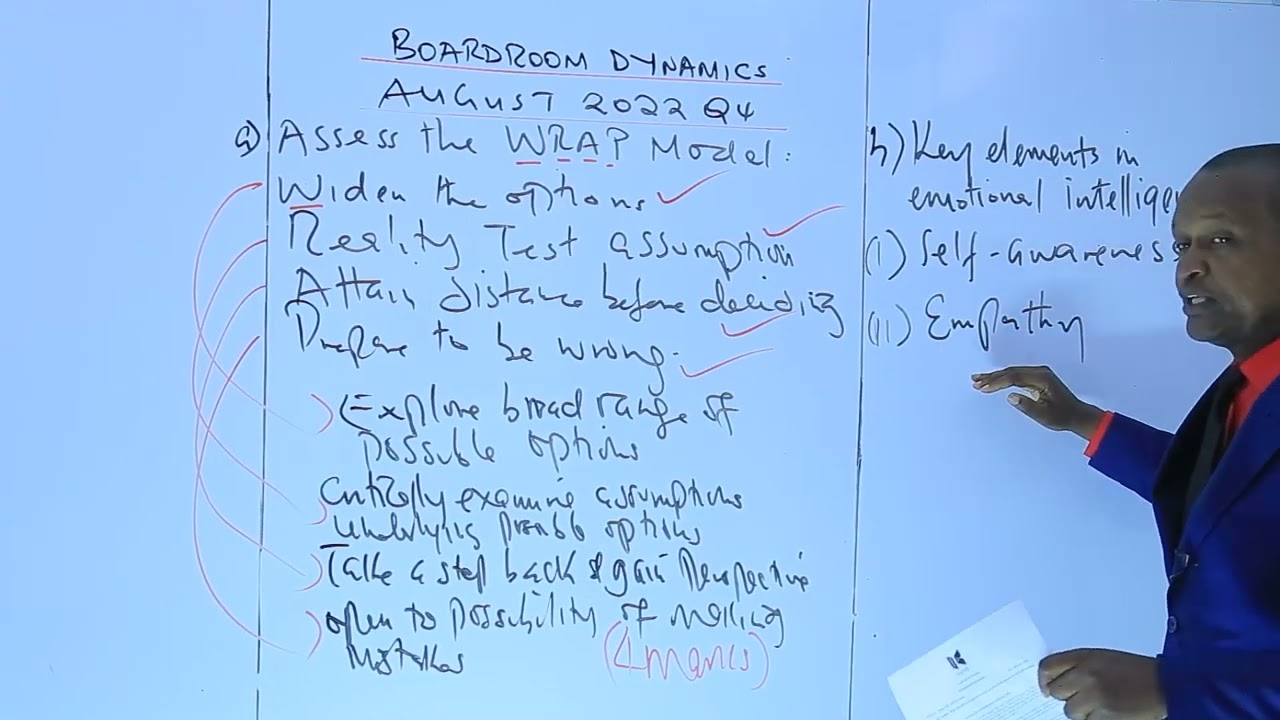 BOARDROOM DYNAMICS
AUGUST 2022 Q4
a) Assess the WRAP Model:
Widen the options
Reality Test assumption
Attain distance before deciding
Prepare to be wrong.
Explore broad range of
possible options
Critically examine assumptions
underlying possible options
Take a step back & gain Perspective
open to possibility of making
mistakes
(4 marks)
b) Key elements in
emotional intellige
(i) Self-awareness
(ii) Empathy